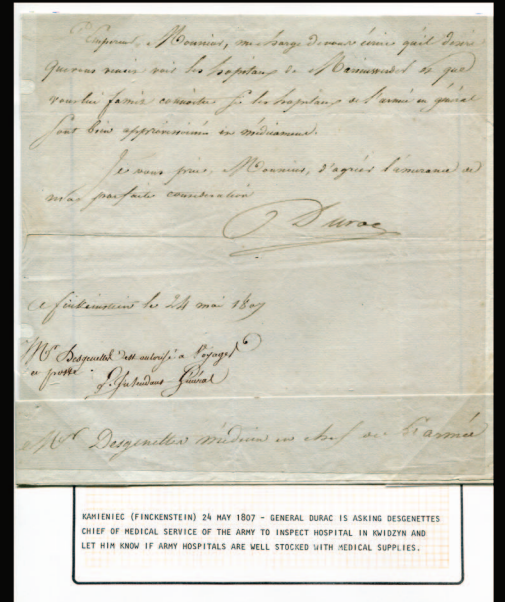 L'Empereur, Monsieur, me charge de vous écrire qu'il désire
que vous veniez voir les hopitaux de Marienverder et que
vous lui fassiez connoitre si les hopitaux de l'armée en général
sont bien approvisionnés en médicamens.
Je vous prie, Monsieur, d'agréer l'assurance de
ma parfaite considération
Duroc
a finkenstein le 24 mai 1807
Mr Desgenettes est autorisé a voyager
en poste
L'Intendant Général
Mr Desgenettes médecin en chef de l'armée
KAMIENIEC (FINCKENSTEIN) 24 MAY 1807 - GENERAL DURAC IS ASKING DESGENETTES
CHIEF OF MEDICAL SERVICE OF THE ARMY TO INSPECT HOSPITAL IN KWIDZYN AND
LET HIM KNOW IF ARMY HOSPITALS ARE WELL STOCKED WITH MEDICAL SUPPLIES.